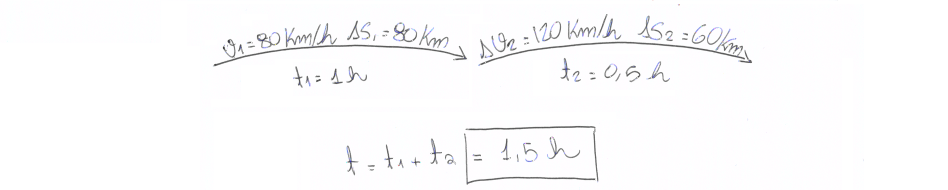 v1=80Km/h ΔS1=80Km Δv2=120Km/h ΔS2=60Km
t1=1h t2=0,5h
t=t1+t2=1,5h